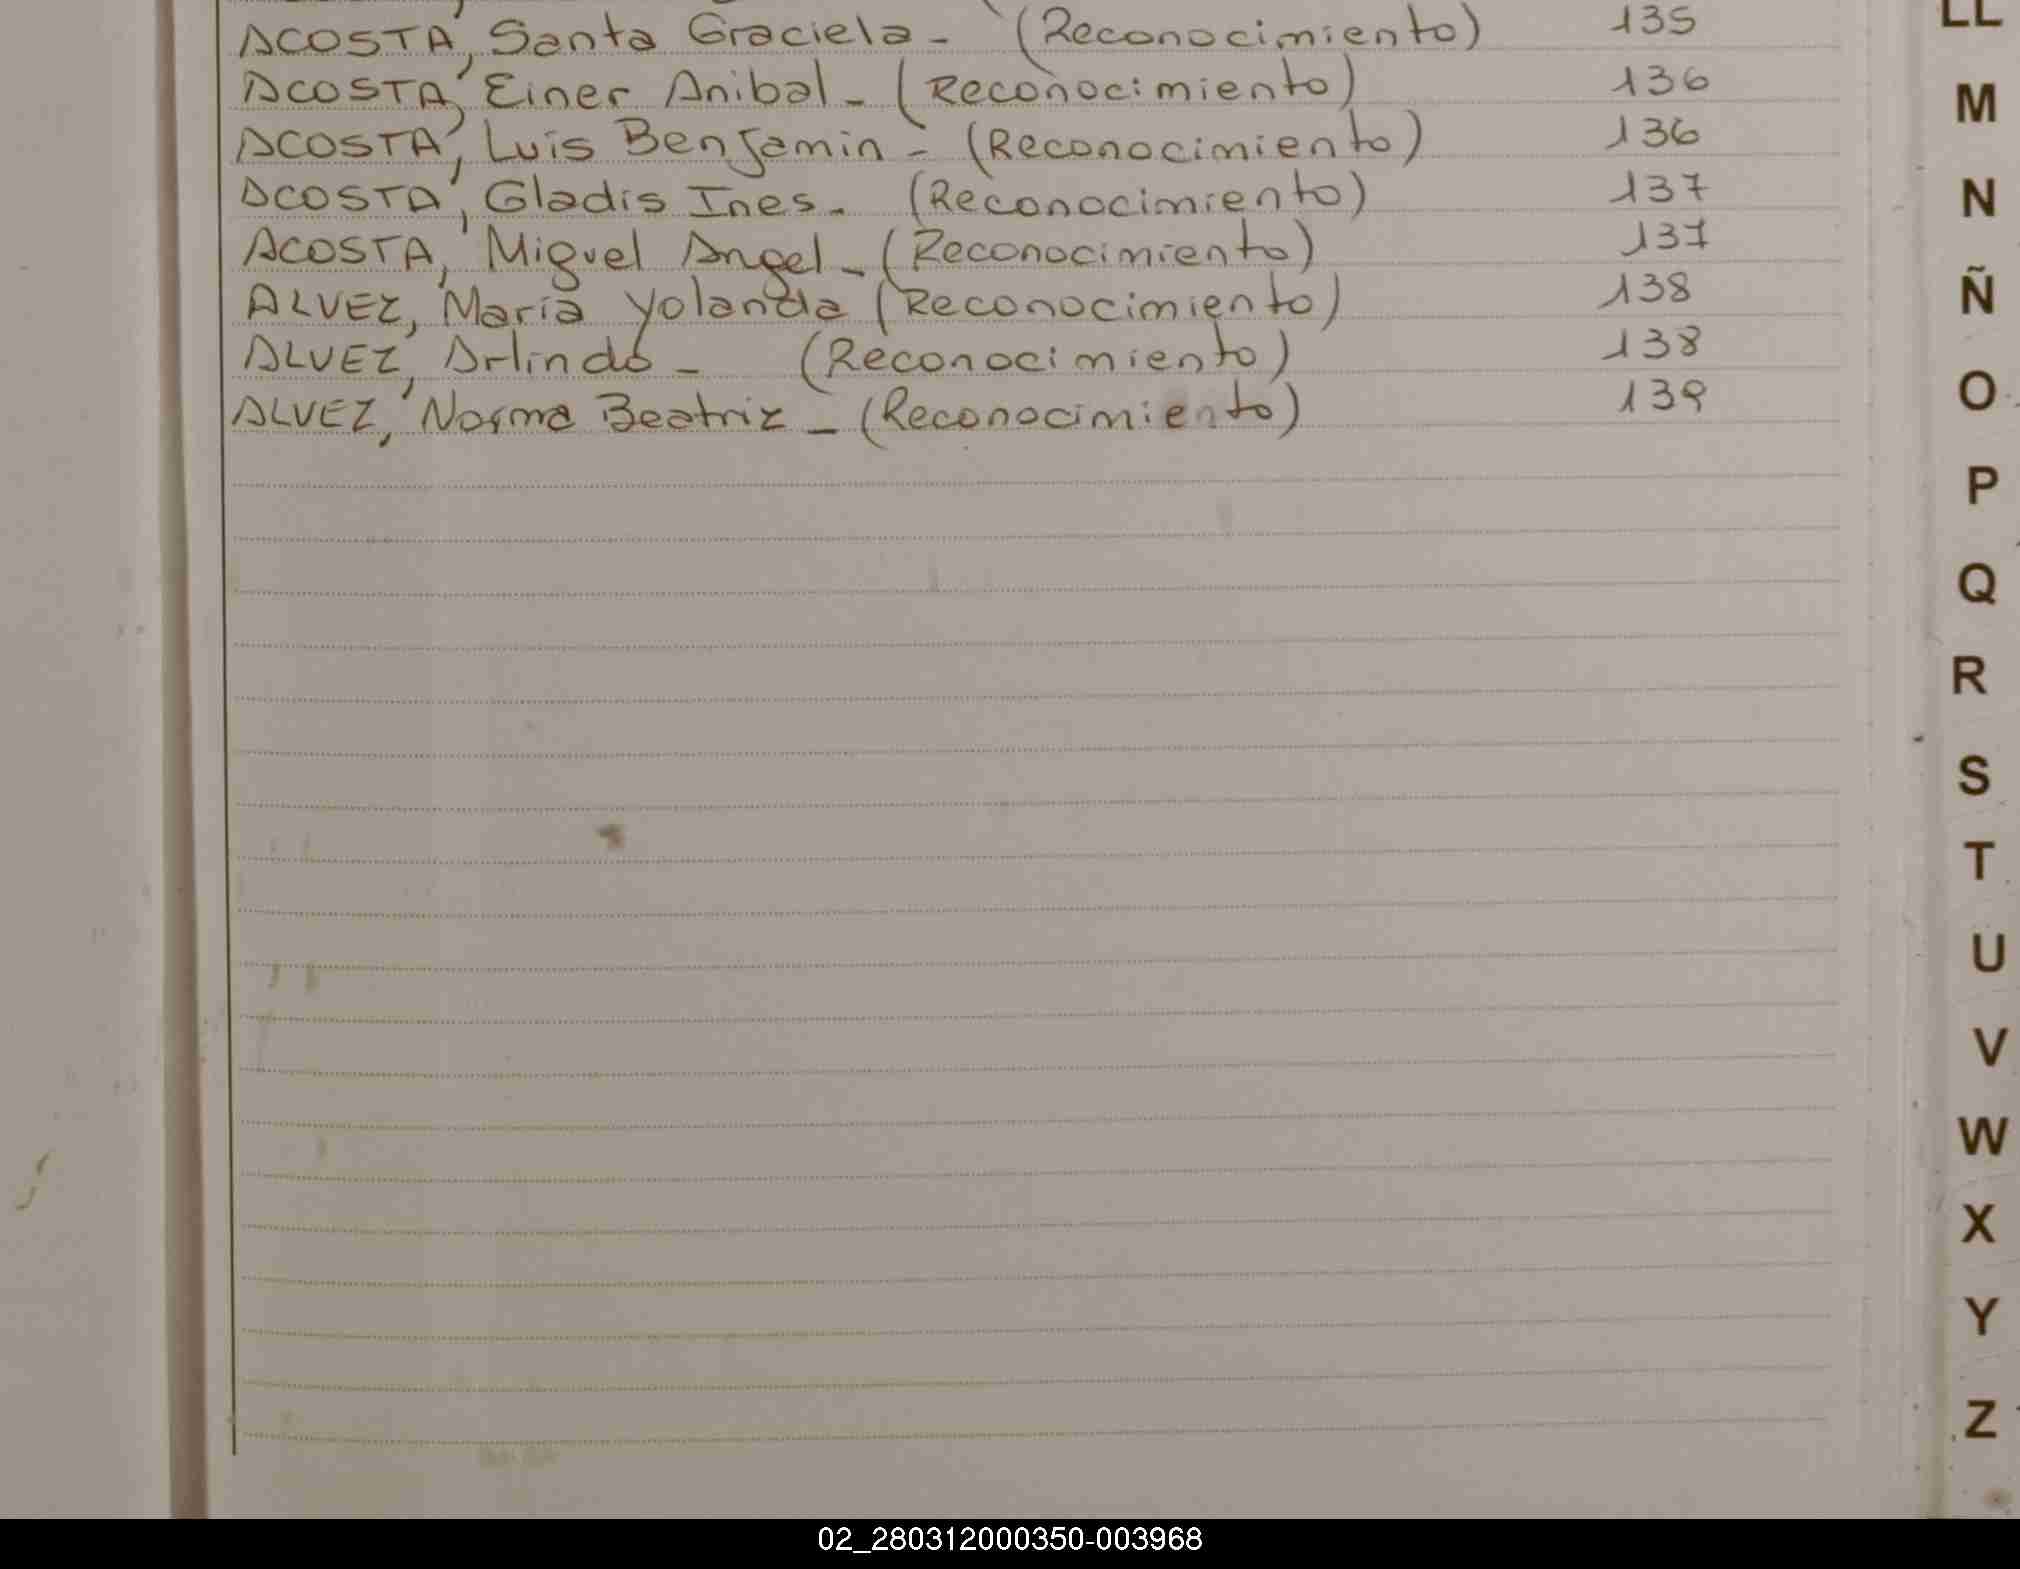 ACOSTA, Santa Graciela - (Reconocimiento) 135
ACOSTA, Einer Anibal - (Reconocimiento) 136
ACOSTA, Luis Benjamin - (Reconocimiento) 136
ACOSTA, Gladis Ines - (Reconocimiento) 137
ACOSTA, Miguel Angel - (Reconocimiento) 137
ALVEZ, María Yolanda (Reconocimiento) 138
ALVEZ, Arlindo - (Reconocimiento) 138
ALVEZ, Norma Beatriz - (Reconocimiento) 139
LL
M
N
Ñ
O
P
Q
R
S
T
U
V
W
X
Y
Z
02_280312000350-003968